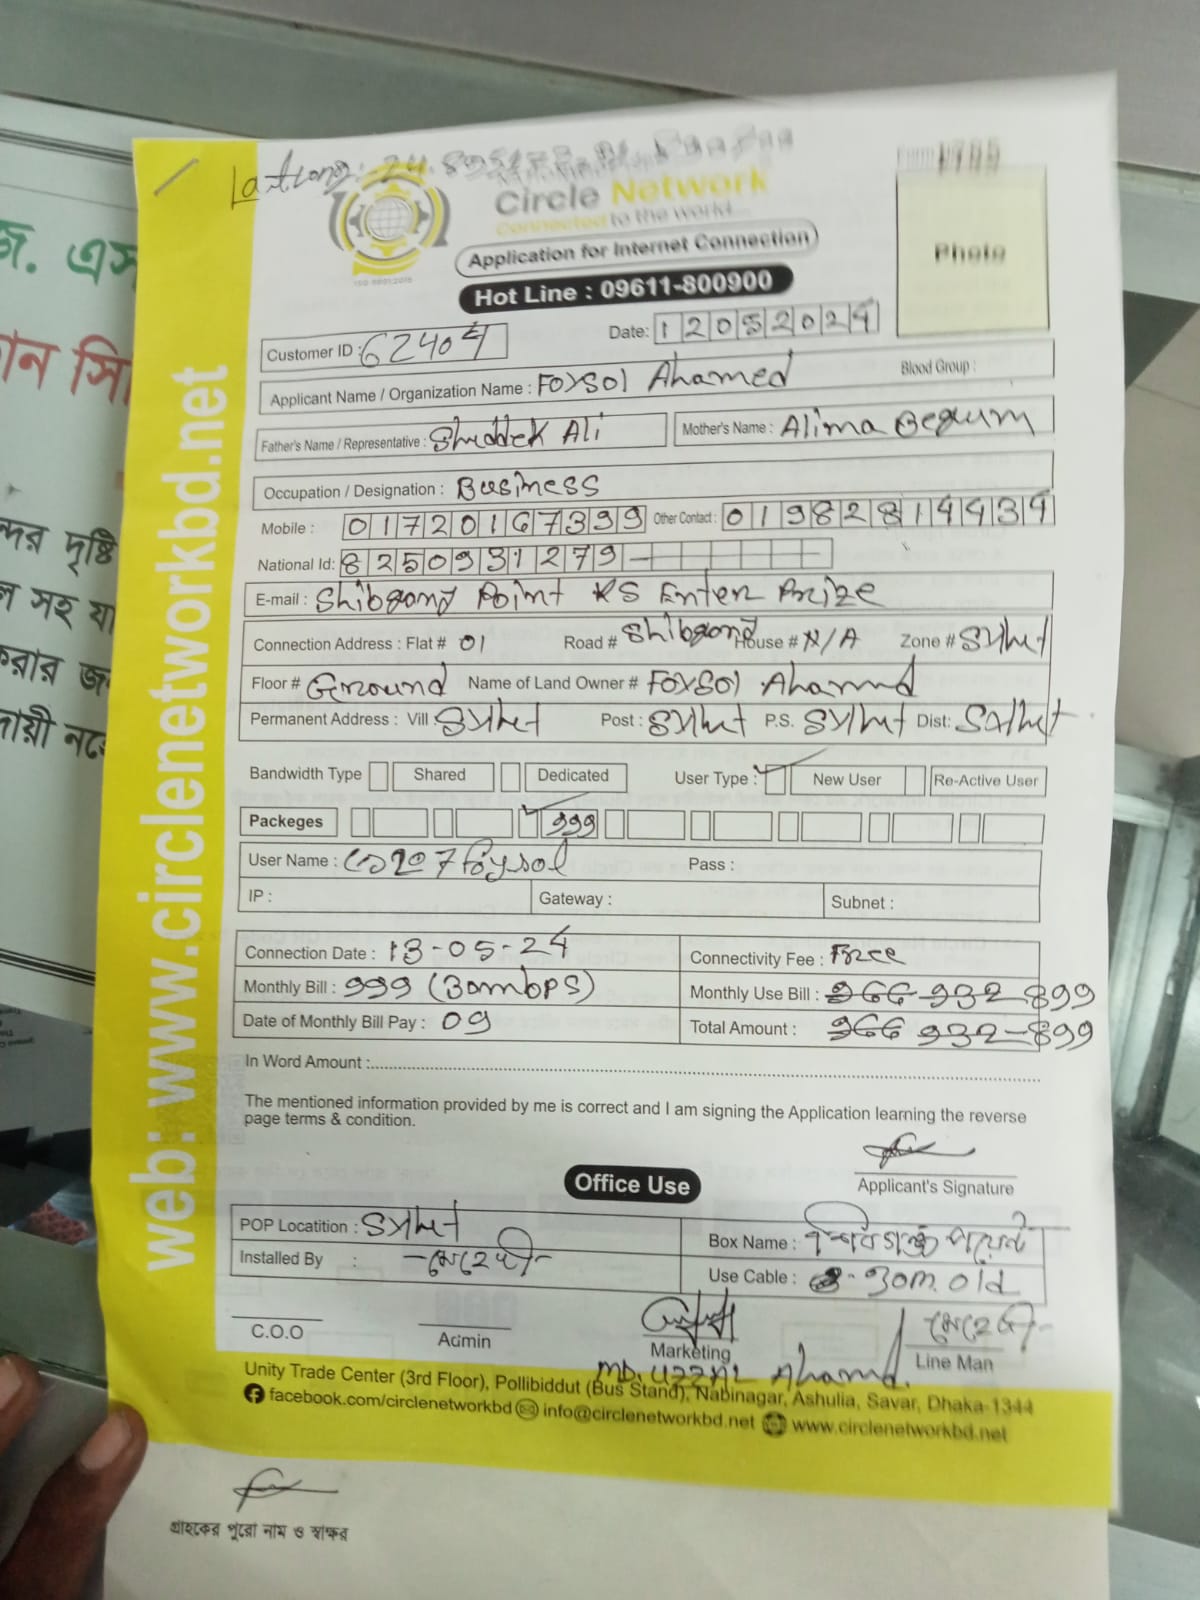 Lat Long: 24.
Circle Network
Connected to the world...
Application for Internet Connection
Hot Line : 09611-800900
ISO 9001:2015
Form
Photo
Customer ID : 62404
Date: 12052024
Applicant Name / Organization Name : Foysol Ahamed
Blood Group :
Father's Name / Representative : Shuddek Ali
Mother's Name : Alima Begum
Occupation / Designation : Business
Mobile : 01720167399 Other Contact : 01982814434
National Id: 8250931279
E-mail : Shibgong Point RS Enter Prize
Connection Address : Flat # 01 Road # Shibgong House # N/A Zone # Sylhet
Floor # Ground Name of Land Owner # Foysol Ahamed
Permanent Address : Vill : Sylhet Post : Sylhet P.S. Sylhet Dist: Sylhet
Bandwidth Type Shared Dedicated User Type : New User Re-Active User
Packeges 999
User Name : foysol Pass :
IP : Gateway : Subnet :
Connection Date : 13-05-24 Connectivity Fee : Free
Monthly Bill : 999 (30mbps) Monthly Use Bill : 966 932 - 899
Date of Monthly Bill Pay : 09 Total Amount : 966 932 - 899
In Word Amount :
The mentioned information provided by me is correct and I am signing the Application learning the reverse
page terms & condition.
Applicant's Signature
Office Use
POP Locatition : Sylhet Box Name : শিবগঞ্জ পয়েন্ট
Installed By : মেহেদী Use Cable : 30m. old
C.O.O Admin Marketing মেহেদী Line Man
MD. Uzzal Ahamed.
Unity Trade Center (3rd Floor), Pollibiddut (Bus Stand), Nabinagar, Ashulia, Savar, Dhaka-1344
facebook.com/circlenetworkbd info@circlenetworkbd.net www.circlenetworkbd.net
web: www.circlenetworkbd.net
গ্রাহকের পুরো নাম ও স্বাক্ষর
জ. এস
ন্দর দৃষ্টি
সহ যা